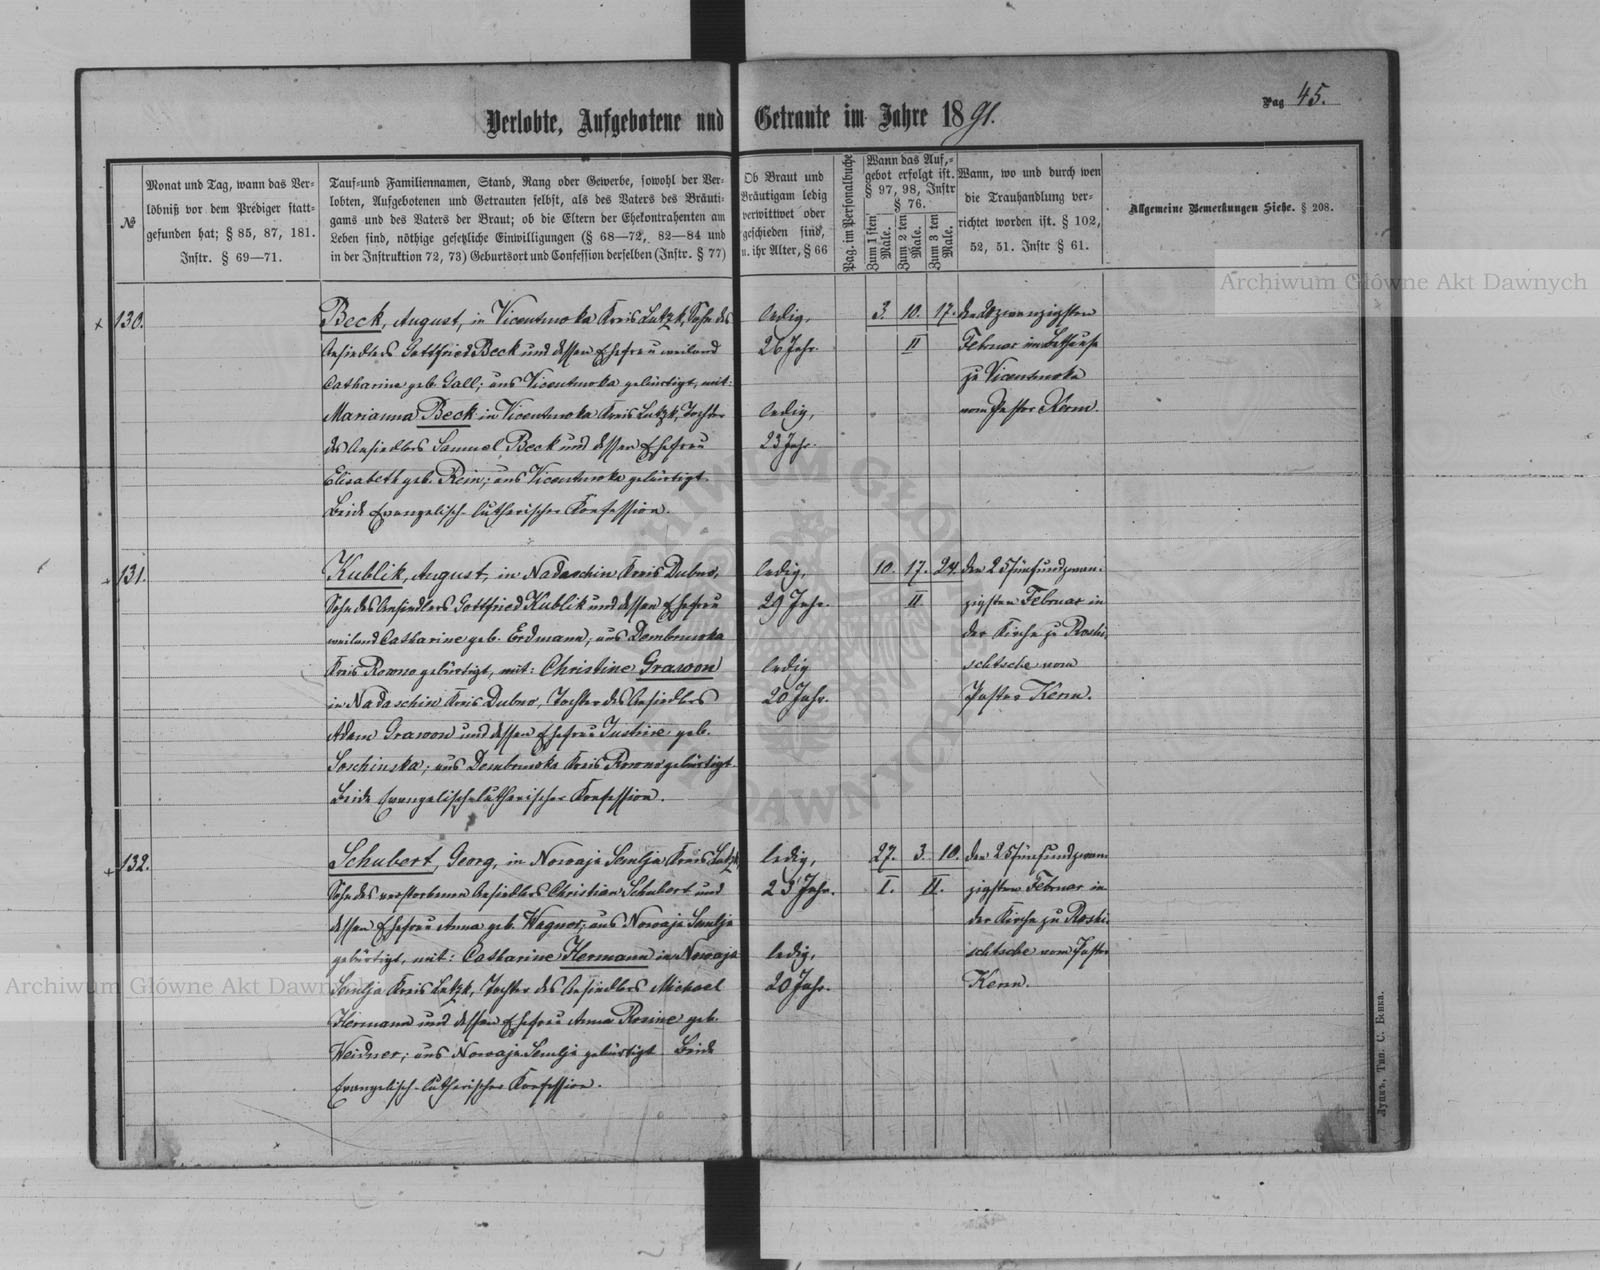 Verlobte, Aufgebotene und Getraute im Jahre 1891.
Pag 45.
№
Monat und Tag, wann das Ver-
löbniß vor dem Prediger statt-
gefunden hat; § 85, 87, 181.
Instr. § 69—71.
Tauf- und Familiennamen, Stand, Rang oder Gewerbe, sowohl der Ver-
lobten, Aufgebotenen und Getrauten selbst, als des Vaters des Bräuti-
gams und des Vaters der Braut; ob die Eltern der Ehekontrahenten am
Leben sind, nöthige gesetzliche Einwilligungen (§ 68—72, 82—84 und
in der Instruktion 72, 73) Geburtsort und Confession derselben (Instr. § 77)
Ob Braut und
Bräutigam ledig
verwittwet oder
geschieden sind,
u. ihr Alter, § 66
Pag. im Personalbuche
Wann das Auf-
gebot erfolgt ist.
§ 97, 98, Instr
§ 76.
Zum 1 sten Male.
Zum 2 ten Male.
Zum 3 ten Male.
Wann, wo und durch wen
die Trauhandlung ver-
richtet worden ist. § 102,
52, 51. Instr § 61.
Allgemeine Bemerkungen Siehe. § 208.
130.
Beck, August, in Vicentmoka Kreis Lutzk, Sohn des
Ansiedlers Gottfried Beck und dessen Ehefrau weiland
Catharine geb. Gall; aus Vicentmoka gebürtigt, mit:
Marianna Beck in Vicentmoka Kreis Lutzk, Tochter
des Ansiedlers Samuel Beck und dessen Ehefrau
Elisabeth geb. Rein; aus Vicentmoka gebürtigt.
Beide Evangelisch-lutherischer Konfession.
ledig,
26 Jahr.
ledig,
23 Jahr.
3. 10. 17.
II
zwanzigsten
Februar im Bethause
zu Vicentmoka
vom Pastor Kerm.
131.
Kublik, August, in Nadaschin Kreis Dubno,
Sohn des Ansiedlers Gottfried Kublik und dessen Ehefrau
weiland Catharine geb. Erdmann; aus Dombrowka
Kreis Rowno gebürtigt, mit: Christine Grawon
in Nadaschin Kreis Dubno, Tochter des Ansiedlers
Adam Grawon und dessen Ehefrau Justine geb.
Soschinska; aus Dombrowka Kreis Rowno gebürtigt.
Beide Evangelisch-lutherischer Konfession.
ledig,
29 Jahr.
ledig
20 Jahr.
10. 17. 24.
II
den 25 fünfundzwan-
zigsten Februar in
der Kirche zu Roshi-
schtsche vom
Pastor Kerm.
132.
Schubert, Georg, in Nowaja Semlja Kreis Lutzk
Sohn des verstorbenen Ansiedlers Christian Schubert und
dessen Ehefrau Anna geb. Wagner; aus Nowaja Semlja
gebürtigt, mit: Catharine Hermann in Nowaja
Semlja Kreis Lutzk, Tochter des Ansiedlers Michael
Hermann und dessen Ehefrau Anna Rosine geb.
Weidner; aus Nowaja Semlja gebürtigt. Beide
Evangelisch-lutherischer Konfession.
ledig,
23 Jahr.
ledig,
20 Jahr.
27. 3. 10.
I. II.
den 25 fünfundzwan-
zigsten Februar in
der Kirche zu Roshi-
schtsche vom Pastor
Kerm.
Луцкъ, Тип. С. Бонка.
Archiwum Główne Akt Dawnych
Archiwum Główne Akt Dawnych
ARCHIWUM GŁÓWNE AKT DAWNYCH